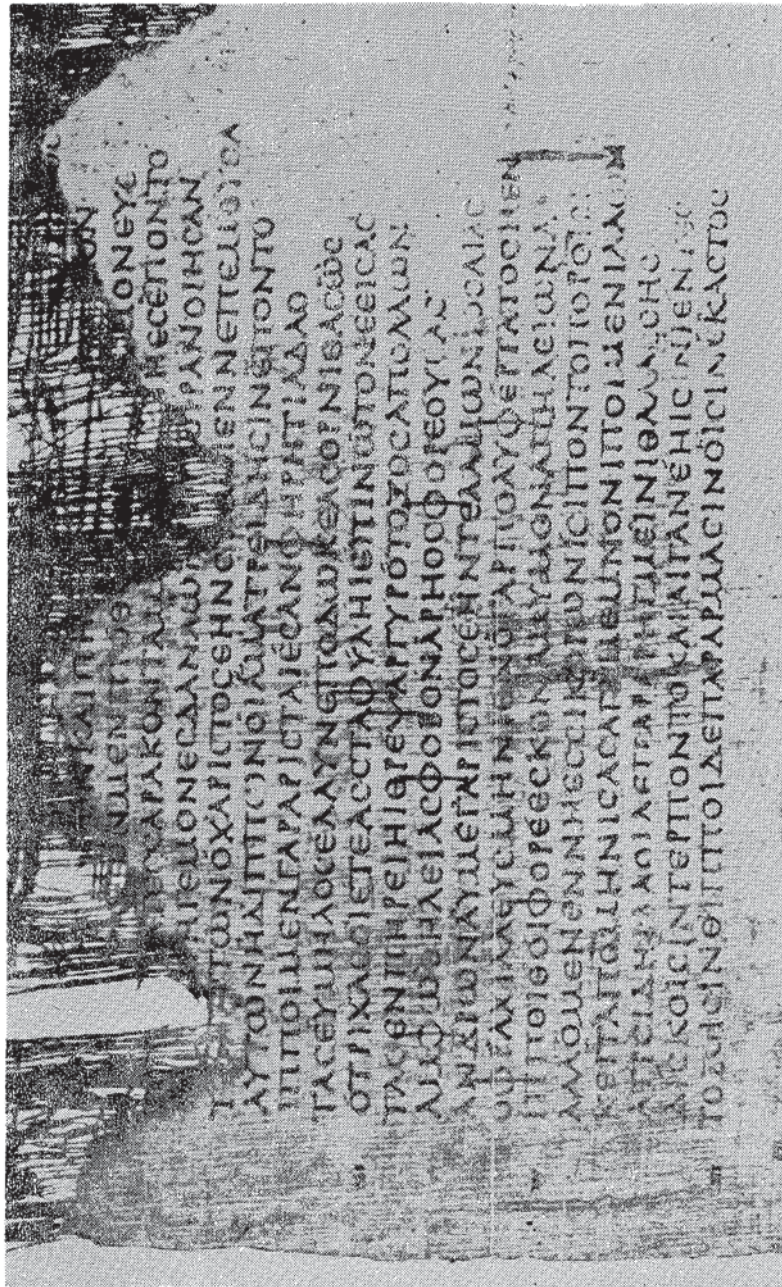 ΝΚΑΙΠΗ ΟΝ
ΜΕΝΠ ΟΘ ΜΟΝΕΥΕ
ΤΕCCΑΡΑΚΟΝΤΑΜ ΗΕCΕΠΟΝΤΟ
ΗΓΕΜΟΝΕCΔΑΝΑΩ ΙΡΑΝΟΙΗCΑΝ
Τ ΤΩΝΟΧΑΡΙCΤΟCΕΗΝC ΙΕΝΝΕΠΕΜΟΥCΑ
ΑΥΤΩΝΗΔΙΠΠΩΝΟΙΑΜΑΤΡΕΙΔΗCΙΝΕΠΟΝΤΟ
ΙΠΠΟΙΜΕΝΓΑΡΑΡΙCΤΑΙΕCΑΝΦΗΡΗΤΙΑΔΑΟ
ΤΑCΕΥΜΗΛΟCΕΛΑΥΝΕΠΟΔΩΚΕΑCΟΡΝΙΘΑCΩC
ΟΤΡΙΧΑCΟΙΕΤΕΑCCΤΑΦΥΛΗΙΕΠΙΝΩΤΟΝΕΕΙCΑC
ΤΑCΕΝΠΗΡΕΙΗΙΘΡΕΨΑΡΓΥΡΟΤΟΞΟCΑΠΟΛΛΩΝ
ΑΜΦΩΘΗΛΕΙΑCΦΟΒΟΝΑΡΗΟCΦΟΡΕΟΥCΑC
ΑΝΔΡΩΝΑΥΜΕΓΑΡΙCΤΟCΕΗΝΤΕΛΑΜΩΝΙΟCΑΙΑC
ΟΦΡΑΧΙΛΛΕΥCΜΗΝΙΕΝΟΓΑΡΠΟΛΥΦΕΡΤΑΤΟCΗΕΝ
ΙΠΠΟΙΘΟΙΦΟΡΕΕCΚΟΝΑΜΥΜΟΝΑΠΗΛΕΙΩΝΑ
ΑΛΛΟΜΕΝΕΝΝΗΕCCΙΚΟΡΩΝΙCΙΠΟΝΤΟΠΟΡΟΙCΙ
ΚΕΙΤΑΠΟΜΗΝΙCΑCΑΓΑΜΕΜΝΟΝΙΠΟΙΜΕΝΙΛΑΩΝ
ΑΤΡΕΙΔΗΙΛΑΟΙΔΕΠΑΡΑΡΗΓΜΕΙΝΙΘΑΛΑCCΗC
ΔΙCΚΟΙCΙΝΤΕΡΠΟΝΤΟΚΑΙΑΙΓΑΝΕΗΙCΙΝΙΕΝΤΕC
ΤΟΞΟΙCΙΝΘΙΠΠΟΙΔΕΠΑΡΑΡΜΑCΙΝΟΙCΙΝΕΚΑCΤΟC